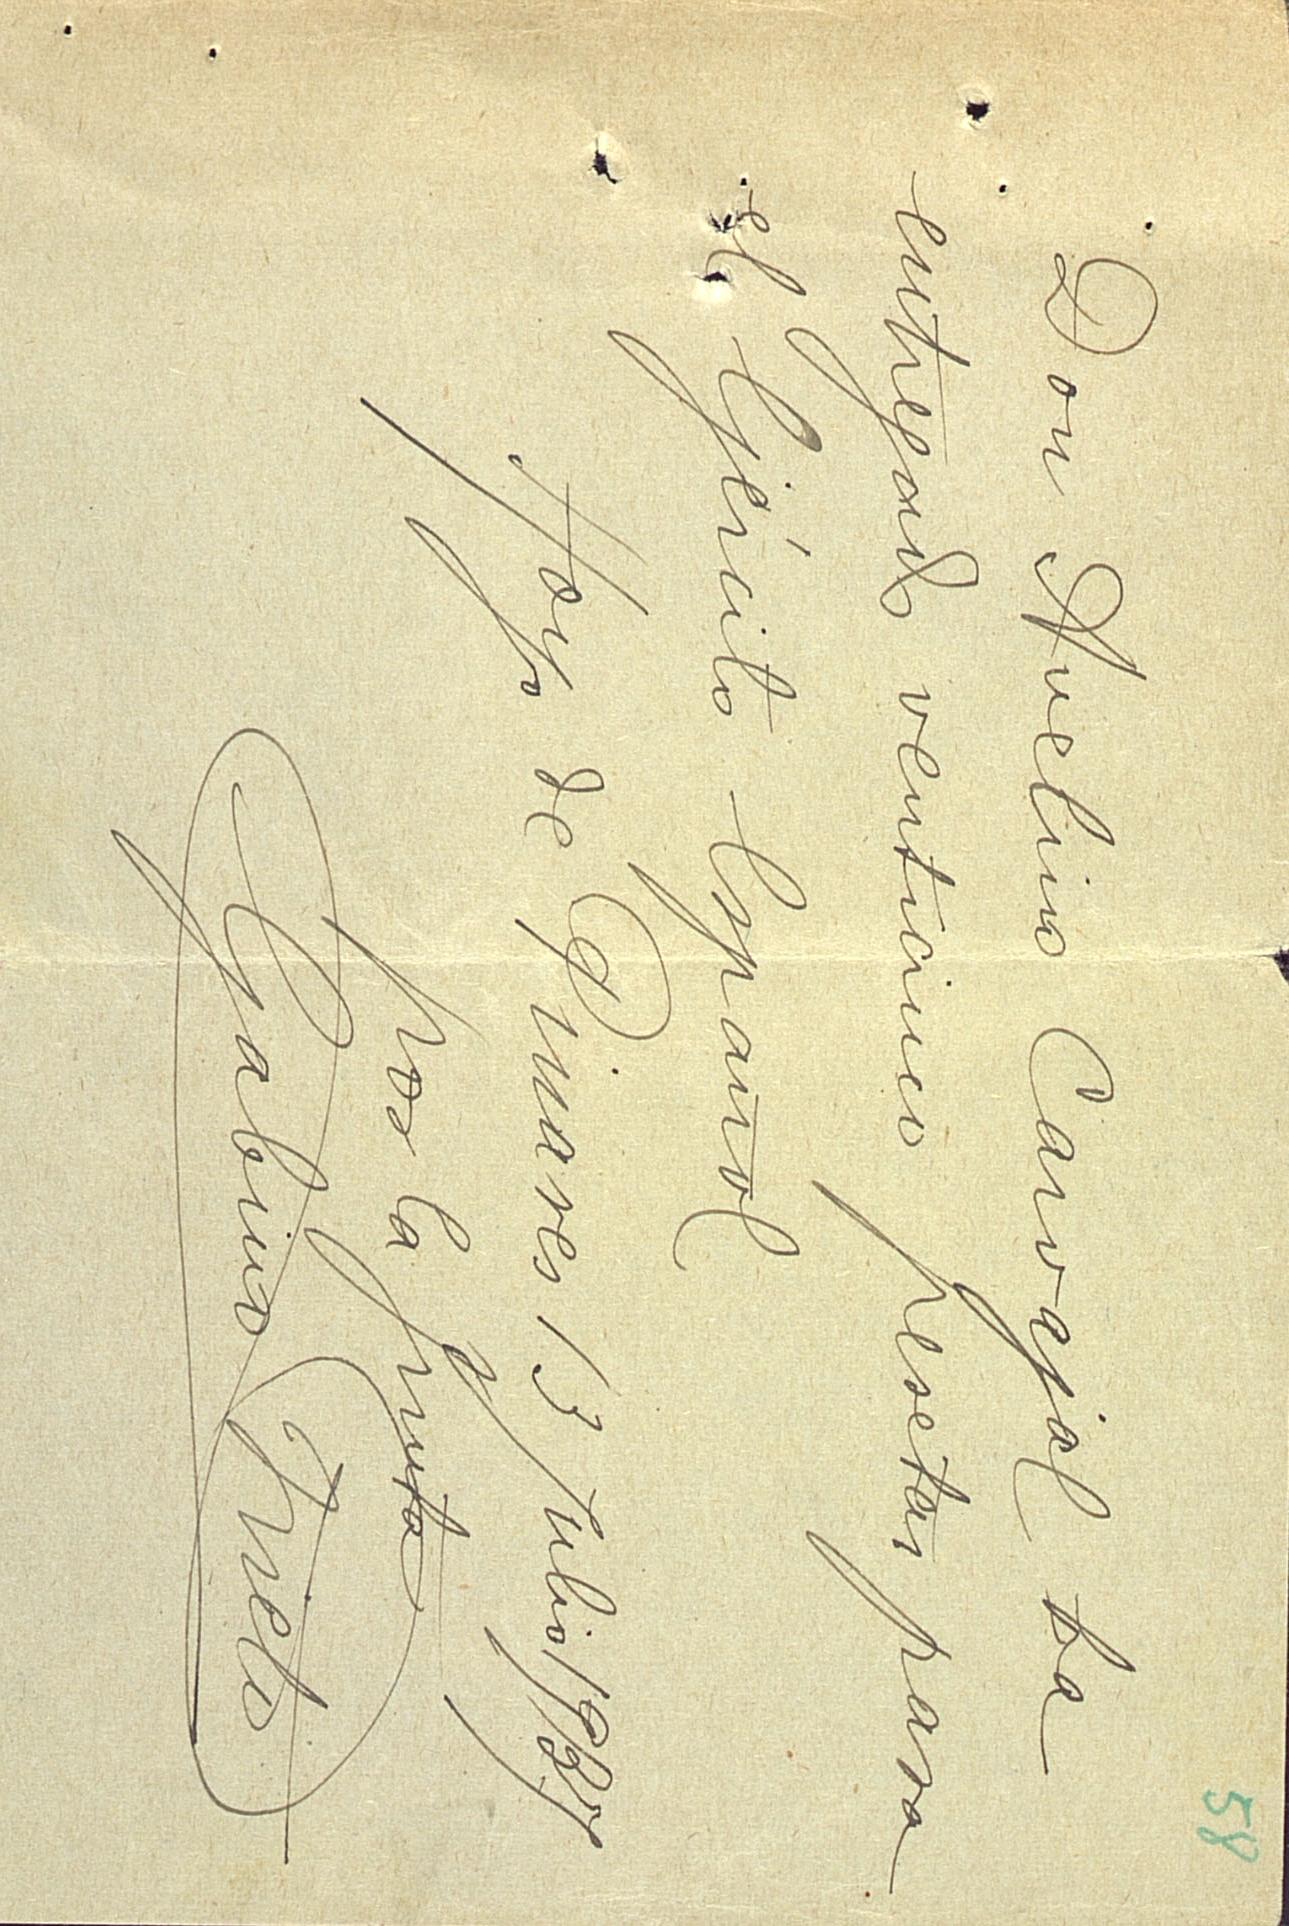 58
Don Avelino Carvajal ha
entregado venticinco pesetas para
el Ejército Español
Hoyo de Pinares 13 Julio 1937
por la Junta
Gabino Prieto